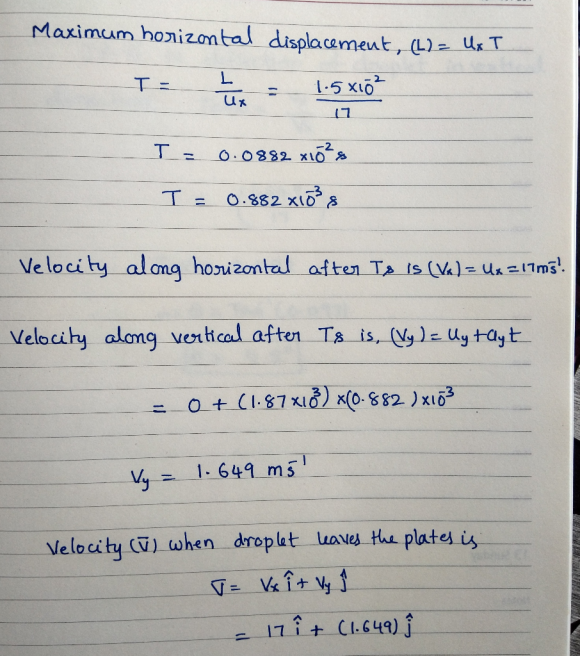 Maximum horizontal displacement, (L) = uₓ T
T = L/uₓ = 1.5 x10⁻²/17
T = 0.0882 x10⁻² s
T = 0.882 x10⁻³ s
Velocity along horizontal after Ts is (Vₓ) = uₓ = 17 ms⁻¹.
Velocity along vertical after Ts is, (Vy) = uy + ayt
= 0 + (1.87 x10³) x(0.882) x10⁻³
Vy = 1.649 ms⁻¹
Velocity (v̄) when droplet leaves the plates is
v̄ = Vₓ î + Vy ĵ
= 17 î + (1.649) ĵ